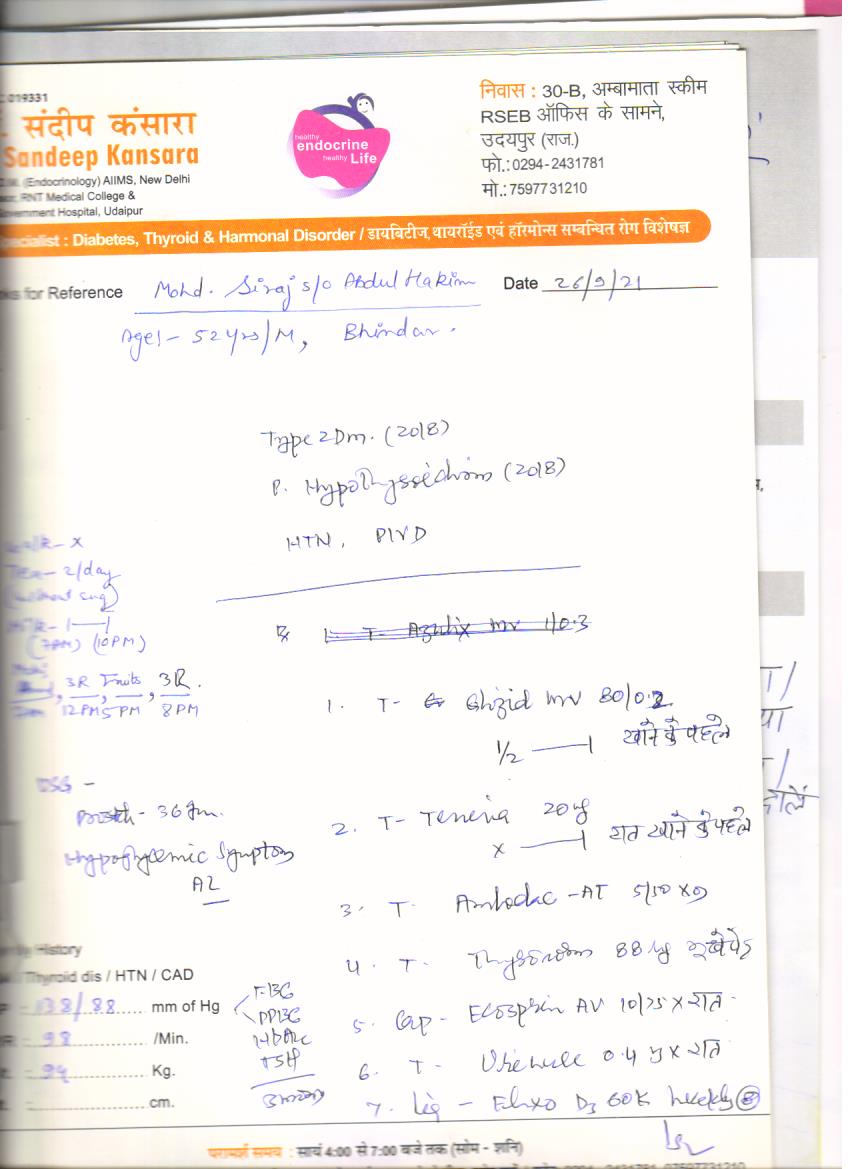 019331
संदीप कंसारा
Sandeep Kansara
(Endocrinology) AIIMS, New Delhi
RNT Medical College &
Government Hospital, Udaipur
healthy
endocrine
healthy Life
निवास : 30-B, अम्बामाता स्कीम
RSEB ऑफिस के सामने,
उदयपुर (राज.)
फो.:0294-2431781
मो.:7597731210
Specialist : Diabetes, Thyroid & Harmonal Disorder / डायबिटीज, थायरॉईड एवं हॉरमोन्स सम्बन्धित रोग विशेषज्ञ
for Reference Mohd. Siraj s/o Abdul Hakim Date 26/9/21
Age:- 52 yrs/M, Bhindar.
Type 2 Dm. (2018)
P. Hypothyroidism (2018)
HTN, PIVD
Walk - x
Tea - 2/day
(without sug)
(7AM) (10PM)
3R Fruits 3R.
12PM 5PM 8PM
Rx 1. T- Azulix MV 1/0.3
1. T- Glizid MV 80/0.2
1/2 —— 1 खाने के पहले
2. T- Teneria 20mg
x —— 1 रात खाने के पहले
3. T. Amlodac -AT 5/50
4. T- Thyronorm 88
5. Cap- Ecosprin AV 10/75 x रात
6. T- 0.4 x रात
7. D3 60K weekly
36 gm.
Hypoglycemic Symptom
History
Thyroid dis / HTN / CAD
138/88 mm of Hg
98 /Min.
94 Kg.
cm.
FBG
PPBG
HbA1c
TSH
परामर्श समय : सायं 4:00 से 7:00 बजे तक (सोम - शनि)